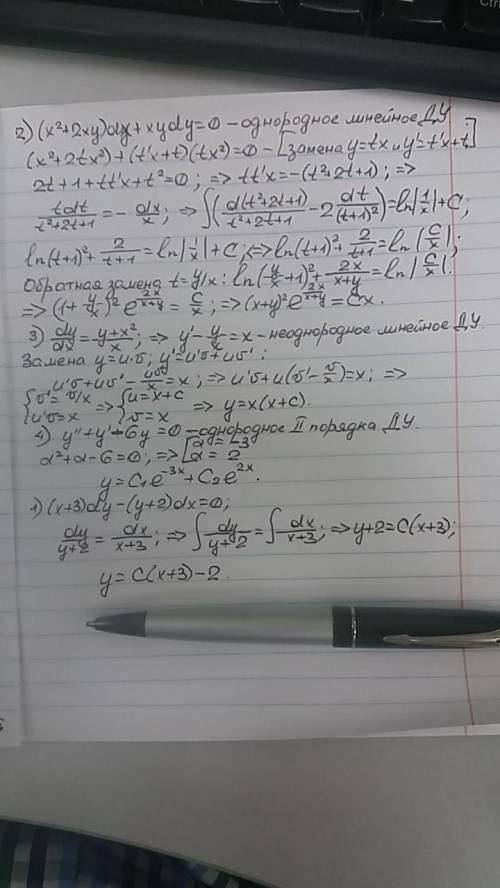 2) (x²+2xy)dx + xydy = 0 – однородное линейное ДУ
(x²+2tx²)+(t'x+t)(tx²)=0 – [замена y=tx и y'=t'x+t]
2t+1+tt'x+t²=0; => tt'x=-(t²+2t+1); =>
tdt/(t²+2t+1) = -dx/x; => ∫(d(t²+2t+1)/(t²+2t+1) - 2dt/(t+1)²) = ln|1/x|+C;
ln(t+1)²+2/(t+1)=ln|1/x|+C; <=> ln(t+1)²+2/(t+1)=ln|C/x|;
Обратная замена t=y/x: ln(y/x+1)²+2x/(x+y)=ln|C/x|.
=> (1+y/x)²e^(2x/(x+y))=C/x; => (x+y)²e^(2x/(x+y))=Cx.
3) dy/dx=(y+x²)/x; => y'-y/x=x – неоднородное линейное ДУ.
Замена y=u·v; y'=u'v+uv':
u'v+uv'-uv/x=x; => u'v+u(v'-v/x)=x; =>
{v'=v/x u'v=x => {u=x+c v=x => y=x(x+c).
4) y''+y'-6y=0 – однородное II порядка ДУ.
α²+α-6=0; => [α=-3 α=2
y=C₁e^(-3x)+C₂e^(2x).
1) (x+3)dy-(y+2)dx=0;
dy/(y+2)=dx/(x+3); => ∫dy/(y+2)=∫dx/(x+3); => y+2=C(x+3);
y=C(x+3)-2.
Ctrl